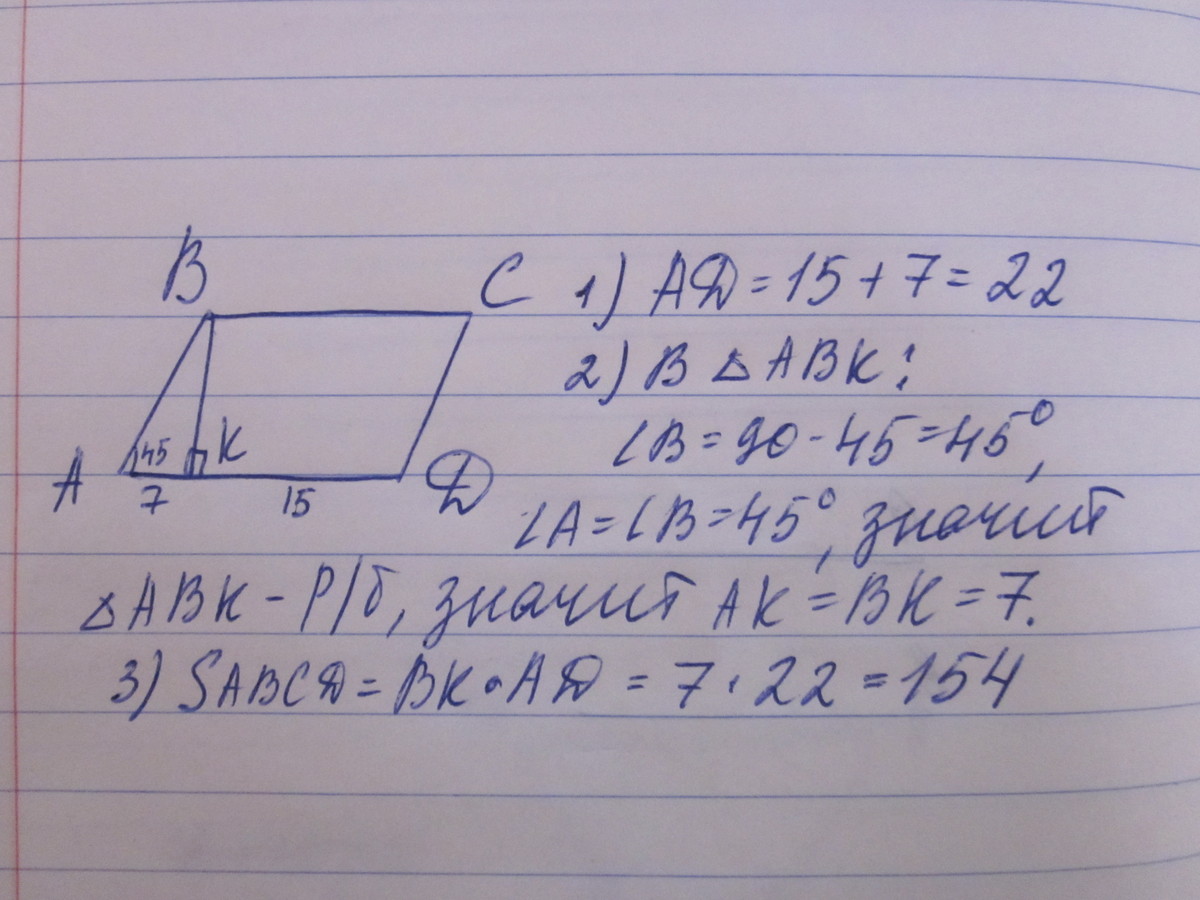 B
C
A
45
K
D
7
15
1) AD = 15 + 7 = 22
2) В △ ABK:
∠B = 90 - 45 = 45°,
∠A = ∠B = 45°, значит
△ABK - р/б, значит AK = BK = 7.
3) SABCD = BK · AD = 7 · 22 = 154